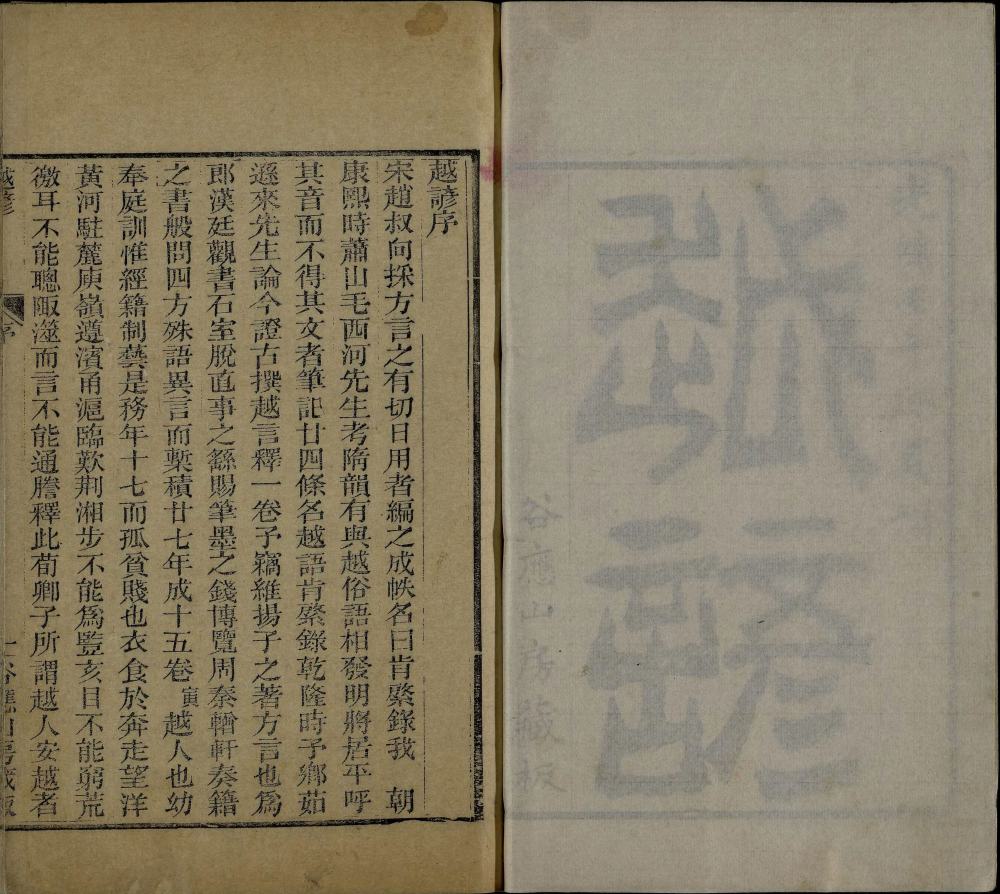 谷應山房藏板
越諺序
宋趙叔向採方言之有切日用者編之成帙名曰肯綮錄我　朝
康熙時蕭山毛西河先生考隋韻有與越俗語相發明將居平呼
其音而不得其文者筆記廿四條名越語肯綮錄乾隆時予鄉茹
遜來先生論今證古撰越言釋一卷予竊維揚子之著方言也爲
郎漢廷觀書石室脫直事之繇賜筆墨之錢博覽周秦輶軒奏籍
之書般問四方殊語異言而槧積廿七年成十五卷寅越人也幼
奉庭訓惟經籍制藝是務年十七而孤貧賤也衣食於奔走望洋
黃河駐麓庾嶺遵濱甬滬臨歎荆湘步不能爲豎亥目不能窮荒
徼耳不能聰陬澨而言不能通謄釋此荀卿子所謂越人安越者
越諺
序
一
谷應山房藏板